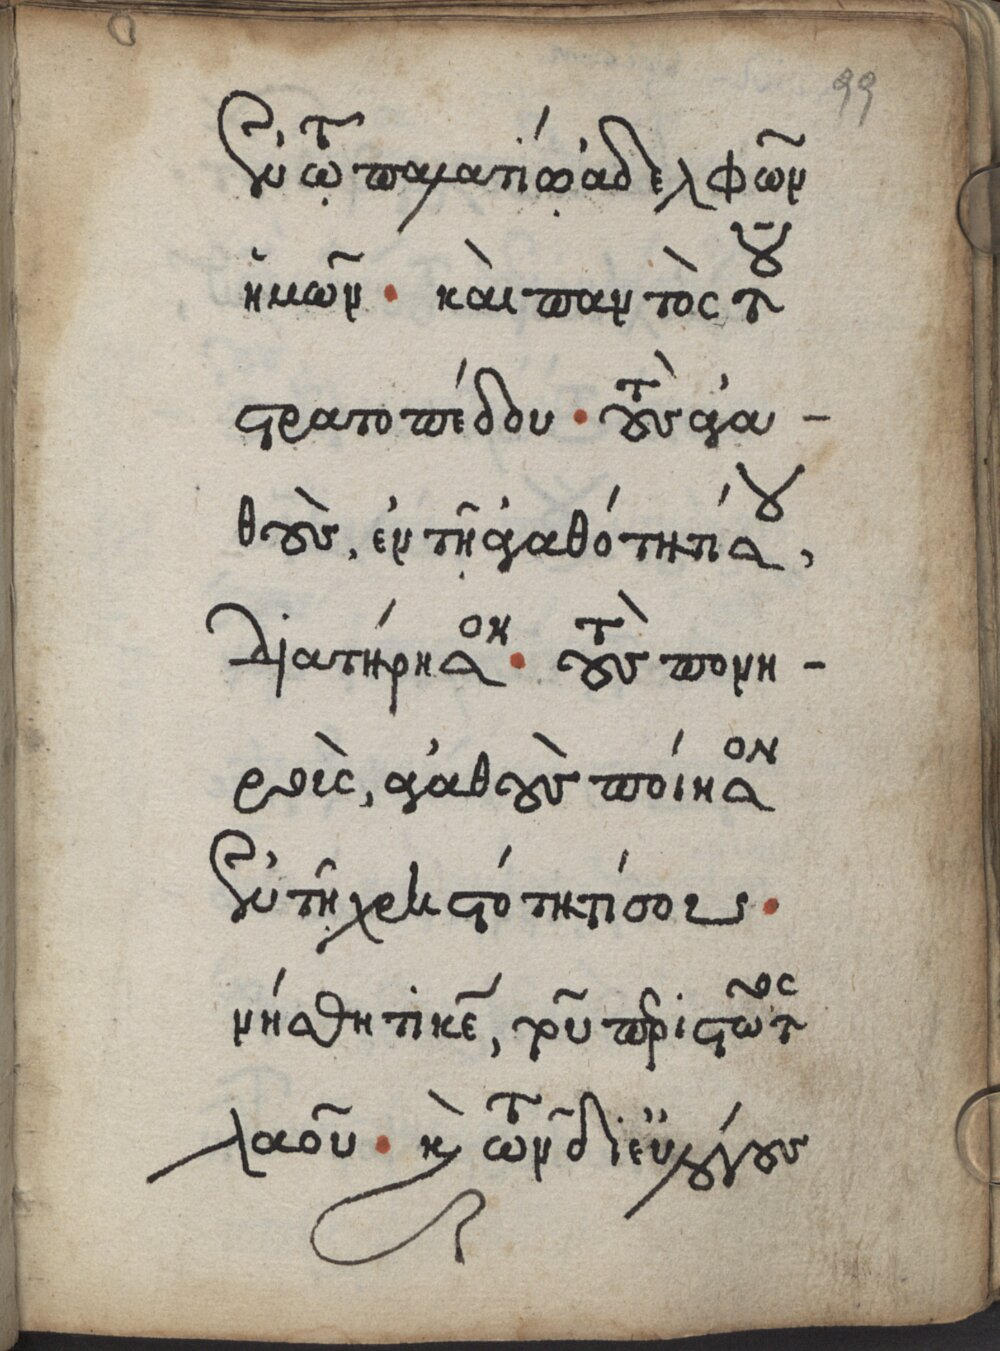 99
ἐν τῷ παλατίῳ ἀδελφῶν
ἡμῶν · καὶ παντὸς τοῦ
στρατοπέδου · τοὺς ἀγα-
θοὺς, ἐν τῇ ἀγαθότητί σου,
διατήρησον · τοὺς πονη-
ροὺς, ἀγαθοὺς ποίησον
ἐν τῇ χρηστότητί σου ·
μνήσθητι κε̄, τοῦ περιεστῶτος
λαοῦ · κ̀ τῶν δι εὐλόγους